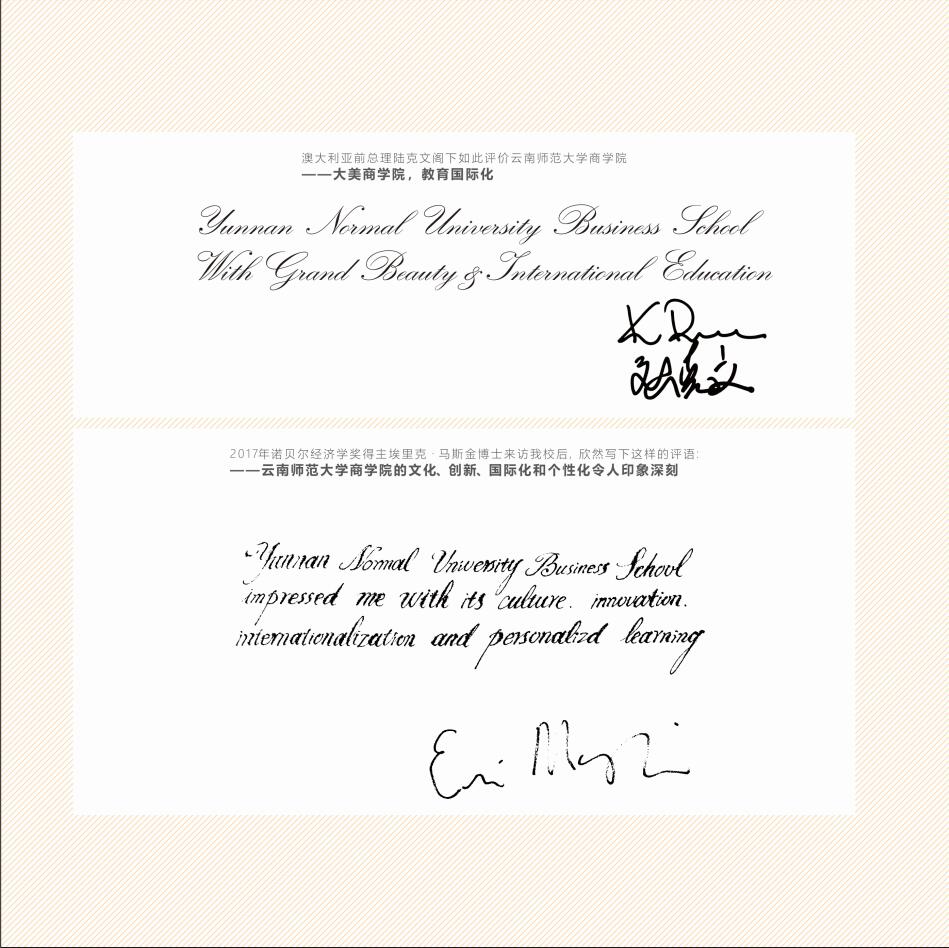 澳大利亚前总理陆克文阁下如此评价云南师范大学商学院
——大美商学院，教育国际化
Yunnan Normal University Business School
With Grand Beauty & International Education
K Ruu
陆克文
2017年诺贝尔经济学奖得主埃里克·马斯金博士来访我校后，欣然写下这样的评语:
——云南师范大学商学院的文化、创新、国际化和个性化令人印象深刻
Yunnan Normal University Business School
impressed me with its culture. innovation.
internationalization and personalizd learning
Eric Maskin